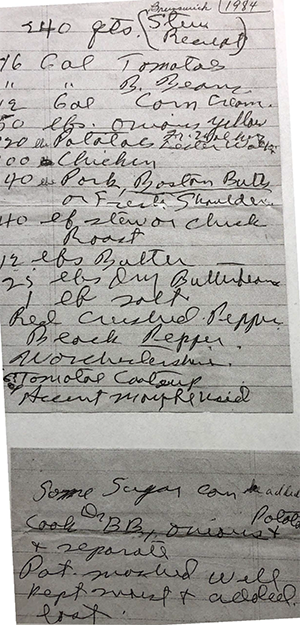 Brunswick 1984
240 qts. (Stew
Receipt)
16 Gal Tomatoes
" " B. Beans
12 Gal Corn Cream.
50 lbs. onions yellow
220 lb Potatoes
200 Chicken
40 lb Pork, Boston Butts
or Fresh Shoulders
40 lb stew or chuck
Roast
12 lbs Butter
25 lbs Dry Butterbeans
1 lb salt
Red Crushed Pepper
Black Pepper.
Worchestershire.
Tomatoe Catsup
Accent may be used
Some Sugar can be added
Cook Dr BB, onions & Potato
& separate
Pot. mashed well
kept moist & added
last.